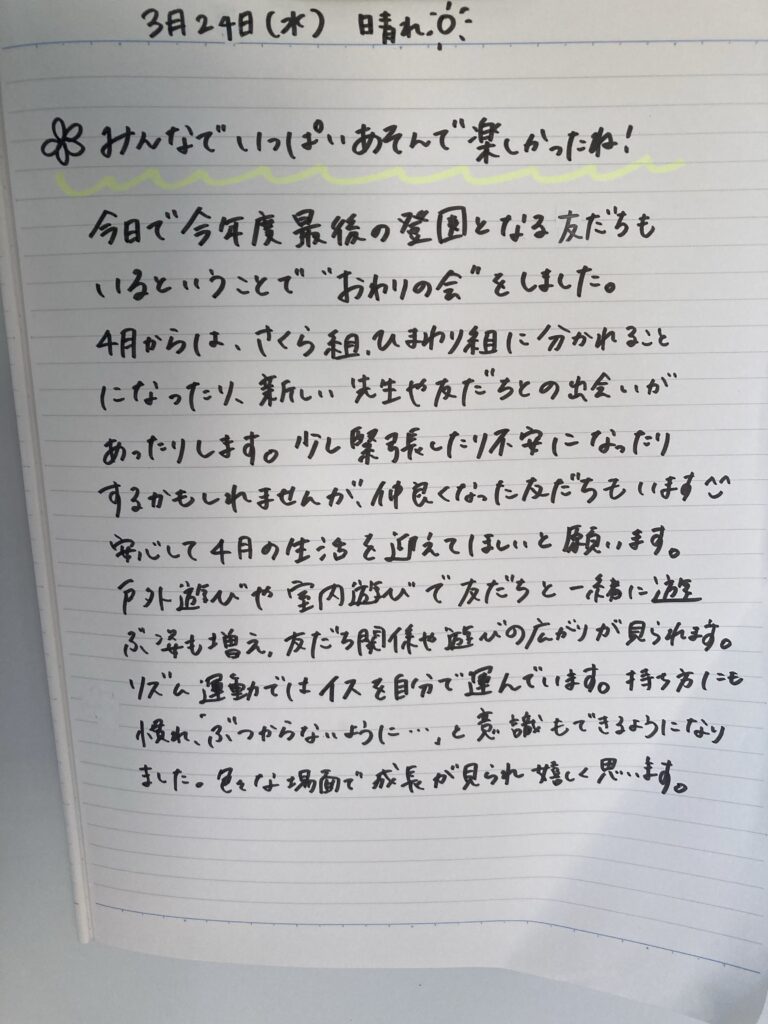 3月24日(水) 晴れ
みんなでいっぱいあそんで楽しかったね!
今日で今年度最後の登園となる友だちも
いるということで"おわりの会"をしました。
4月からは、さくら組、ひまわり組に分かれること
になったり、新しい先生や友だちとの出会いが
あったりします。少し緊張したり不安になったり
するかもしれませんが、仲良くなった友だちもいます^^
安心して4月の生活を迎えてほしいと願います。
戸外遊びや室内遊びで友だちと一緒に遊
ぶ姿も増え、友だち関係や遊びの広がりが見られます。
リズム運動ではイスを自分で運んでいます。持ち方にも
慣れ、「ぶつからないように…」と意識もできるようになり
ました。色々な場面で成長が見られ嬉しく思います。